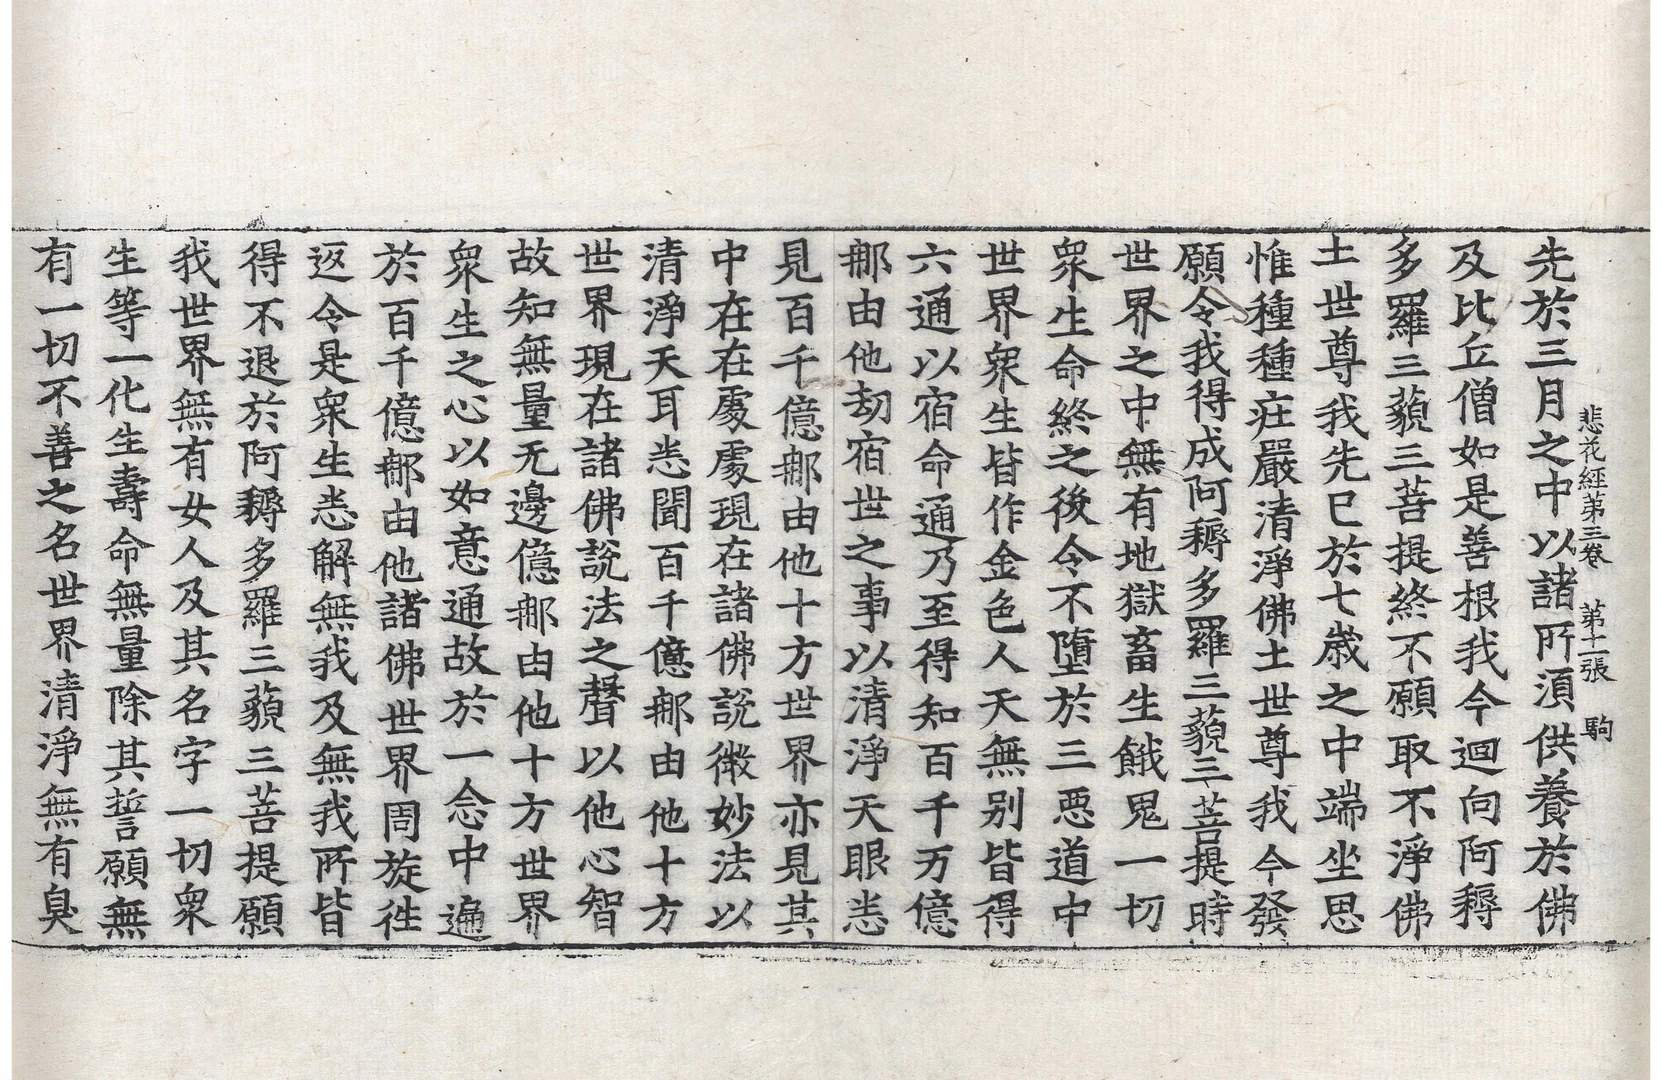 悲花經第三卷 第十一張 駒
先於三月之中以諸所湏供養於佛
及比丘僧如是善根我今迴向阿耨
多羅三藐三菩提終不願取不淨佛
土世尊我先已於七歲之中端坐思
惟種種庄嚴清淨佛土世尊我今發
願令我得成阿耨多羅三藐三菩提時
世界之中無有地獄畜生餓鬼一切
衆生命終之後令不墮於三惡道中
世界衆生皆作金色人天無別皆得
六通以宿命通乃至得知百千万億
那由他劫宿世之事以清淨天眼悉
見百千億那由他十方世界亦見其
中在在處處現在諸佛說微妙法以
清淨天耳悉聞百千億那由他十方
世界現在諸佛說法之聲以他心智
故知無量无邊億那由他十方世界
衆生之心以如意通故於一念中遍
於百千億那由他諸佛世界周旋往
返令是衆生悉解無我及無我所皆
得不退於阿耨多羅三藐三菩提願
我世界無有女人及其名字一切衆
生等一化生壽命無量除其誓願無
有一切不善之名世界清淨無有臭